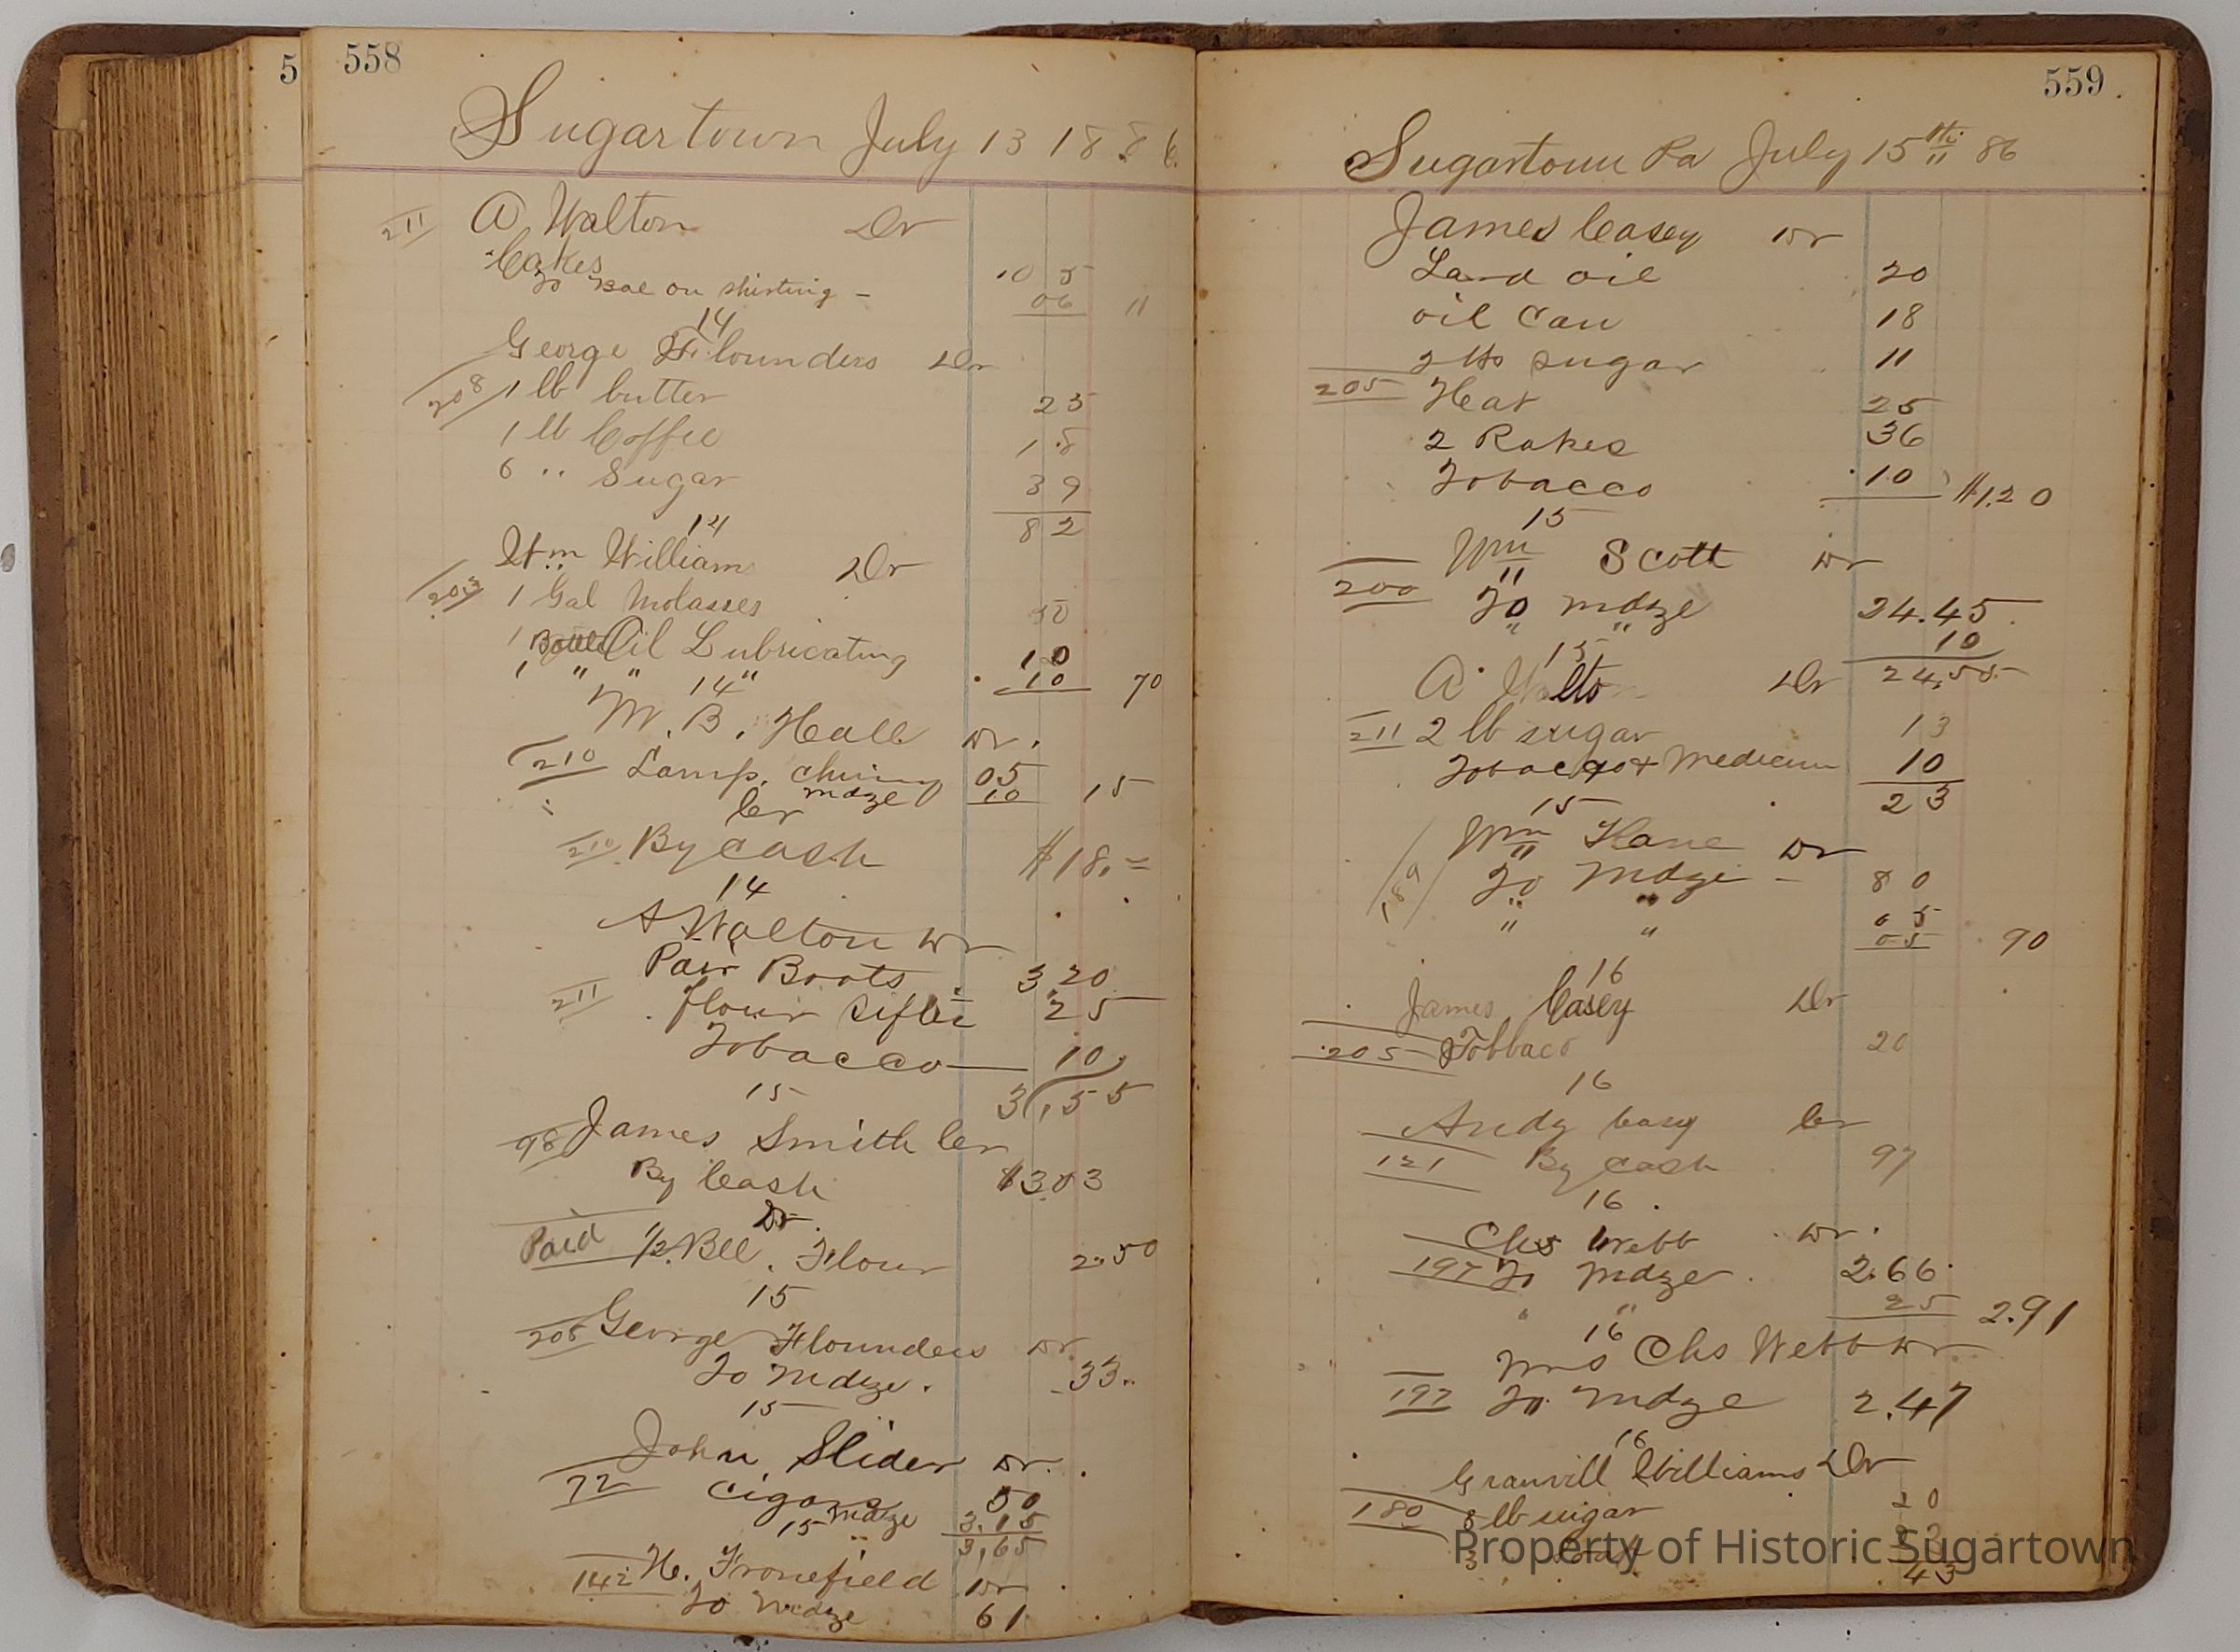 5 558
Sugartown July 13 1886
211 A Walton Dr
Cakes 10 5
To Bal on shirting - 06 11
14
George Flounders Dr
208 1 lb butter 25
1 lb Coffee 18
6 " Sugar 39
82
14
Wm William Dr
203 1 Gal Molasses 50
1 Bottle Oil Lubricating 10
1 " " " 10 70
14
M. B. Hall Dr.
210 Lamp. chimny 05
mdze 10 15
Cr
210 By cash $18.=
14
A Walton Dr
Pair Boots 3.20
211 flour Sifter 25
Tobacco 10
3,55
15
98 James Smith Cr
By Cash $3.03
Dr.
Paid 1/2 Bll. Flour 2.50
15
208 George Flounders Dr
To Mdze. 33..
15
John Slider Dr.
72 Cigars 50
mdze 3.15
15 3,65
142 H. Fronefield Dr
To Mdze 61
559
Sugartown Pa July 15th 86
James Casey Dr
Lard oil 20
oil Can 18
2 lbs sugar 11
205 Hat 25
2 Rakes 36
Tobacco 10 $1.20
15
Wm Scott Dr
200 To mdze 24.45
" " 10
15 24,55
A. Walton Dr
211 2 lb sugar 13
Tobacco + Medicine 10
23
15
Wm Kane Dr
189 To Mdze - 80
" " 05
" " 05 90
16
James Casey Dr
205 Tobbaco 20
16
Andy Casy Cr
121 By cash 97
16.
Chs Webb Dr.
197 To Mdze. 2.66
" " 25 2.91
16
Mrs Chs Webb Dr
197 To Mdze 2.47
16
Granvill Williams Dr
180 lb sugar 20
3
43
Property of Historic Sugartown